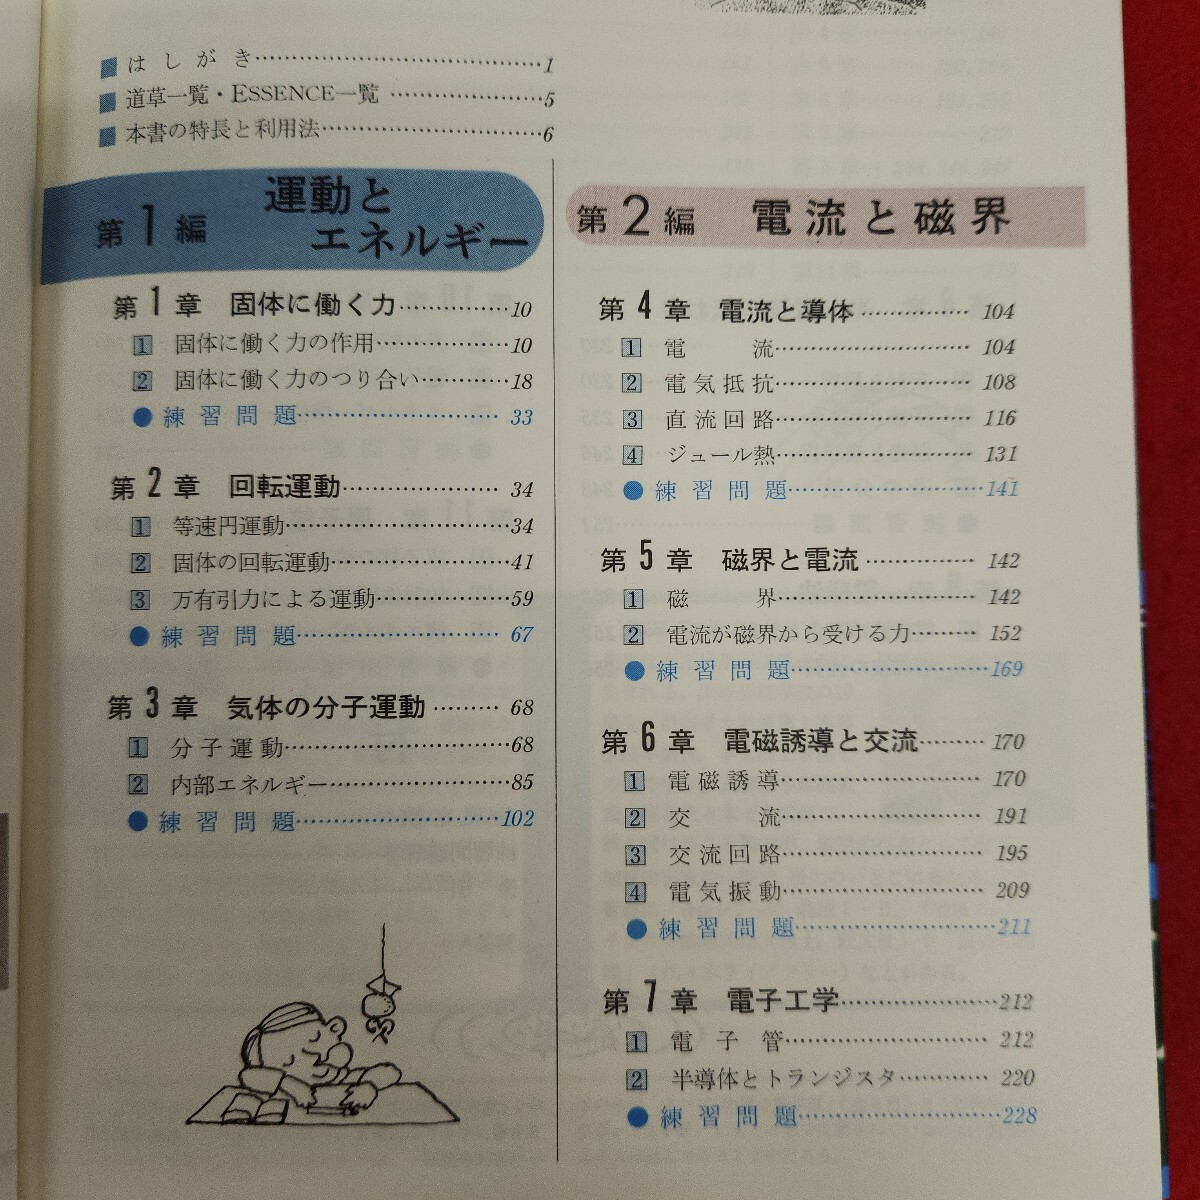 はしがき…1
道草一覧・ESSENCE一覧…5
本書の特長と利用法…6
第1編 運動とエネルギー
第1章 固体に働く力…10
1 固体に働く力の作用…10
2 固体に働く力のつり合い…18
●練習問題…33
第2章 回転運動…34
1 等速円運動…34
2 固体の回転運動…41
3 万有引力による運動…59
●練習問題…67
第3章 気体の分子運動…68
1 分子運動…68
2 内部エネルギー…85
●練習問題…102
第2編 電流と磁界
第4章 電流と導体…104
1 電流…104
2 電気抵抗…108
3 直流回路…116
4 ジュール熱…131
●練習問題…141
第5章 磁界と電流…142
1 磁界…142
2 電流が磁界から受ける力…152
●練習問題…169
第6章 電磁誘導と交流…170
1 電磁誘導…170
2 交流…191
3 交流回路…195
4 電気振動…209
●練習問題…211
第7章 電子工学…212
1 電子管…212
2 半導体とトランジスタ…220
●練習問題…228